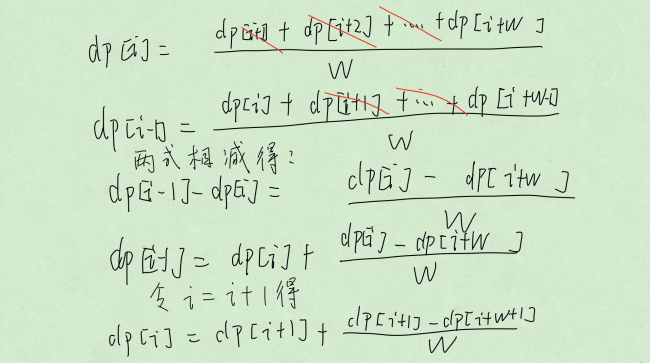 dp[i] = (dp[i+1] + dp[i+2] + ... + dp[i+W]) / W
dp[i-1] = (dp[i] + dp[i+1] + ... + dp[i+W-1]) / W
两式相减得:
dp[i-1] - dp[i] = (dp[i] - dp[i+W]) / W
dp[i-1] = dp[i] + (dp[i] - dp[i+W]) / W
令 i = i+1 得
dp[i] = dp[i+1] + (dp[i+1] - dp[i+W+1]) / W